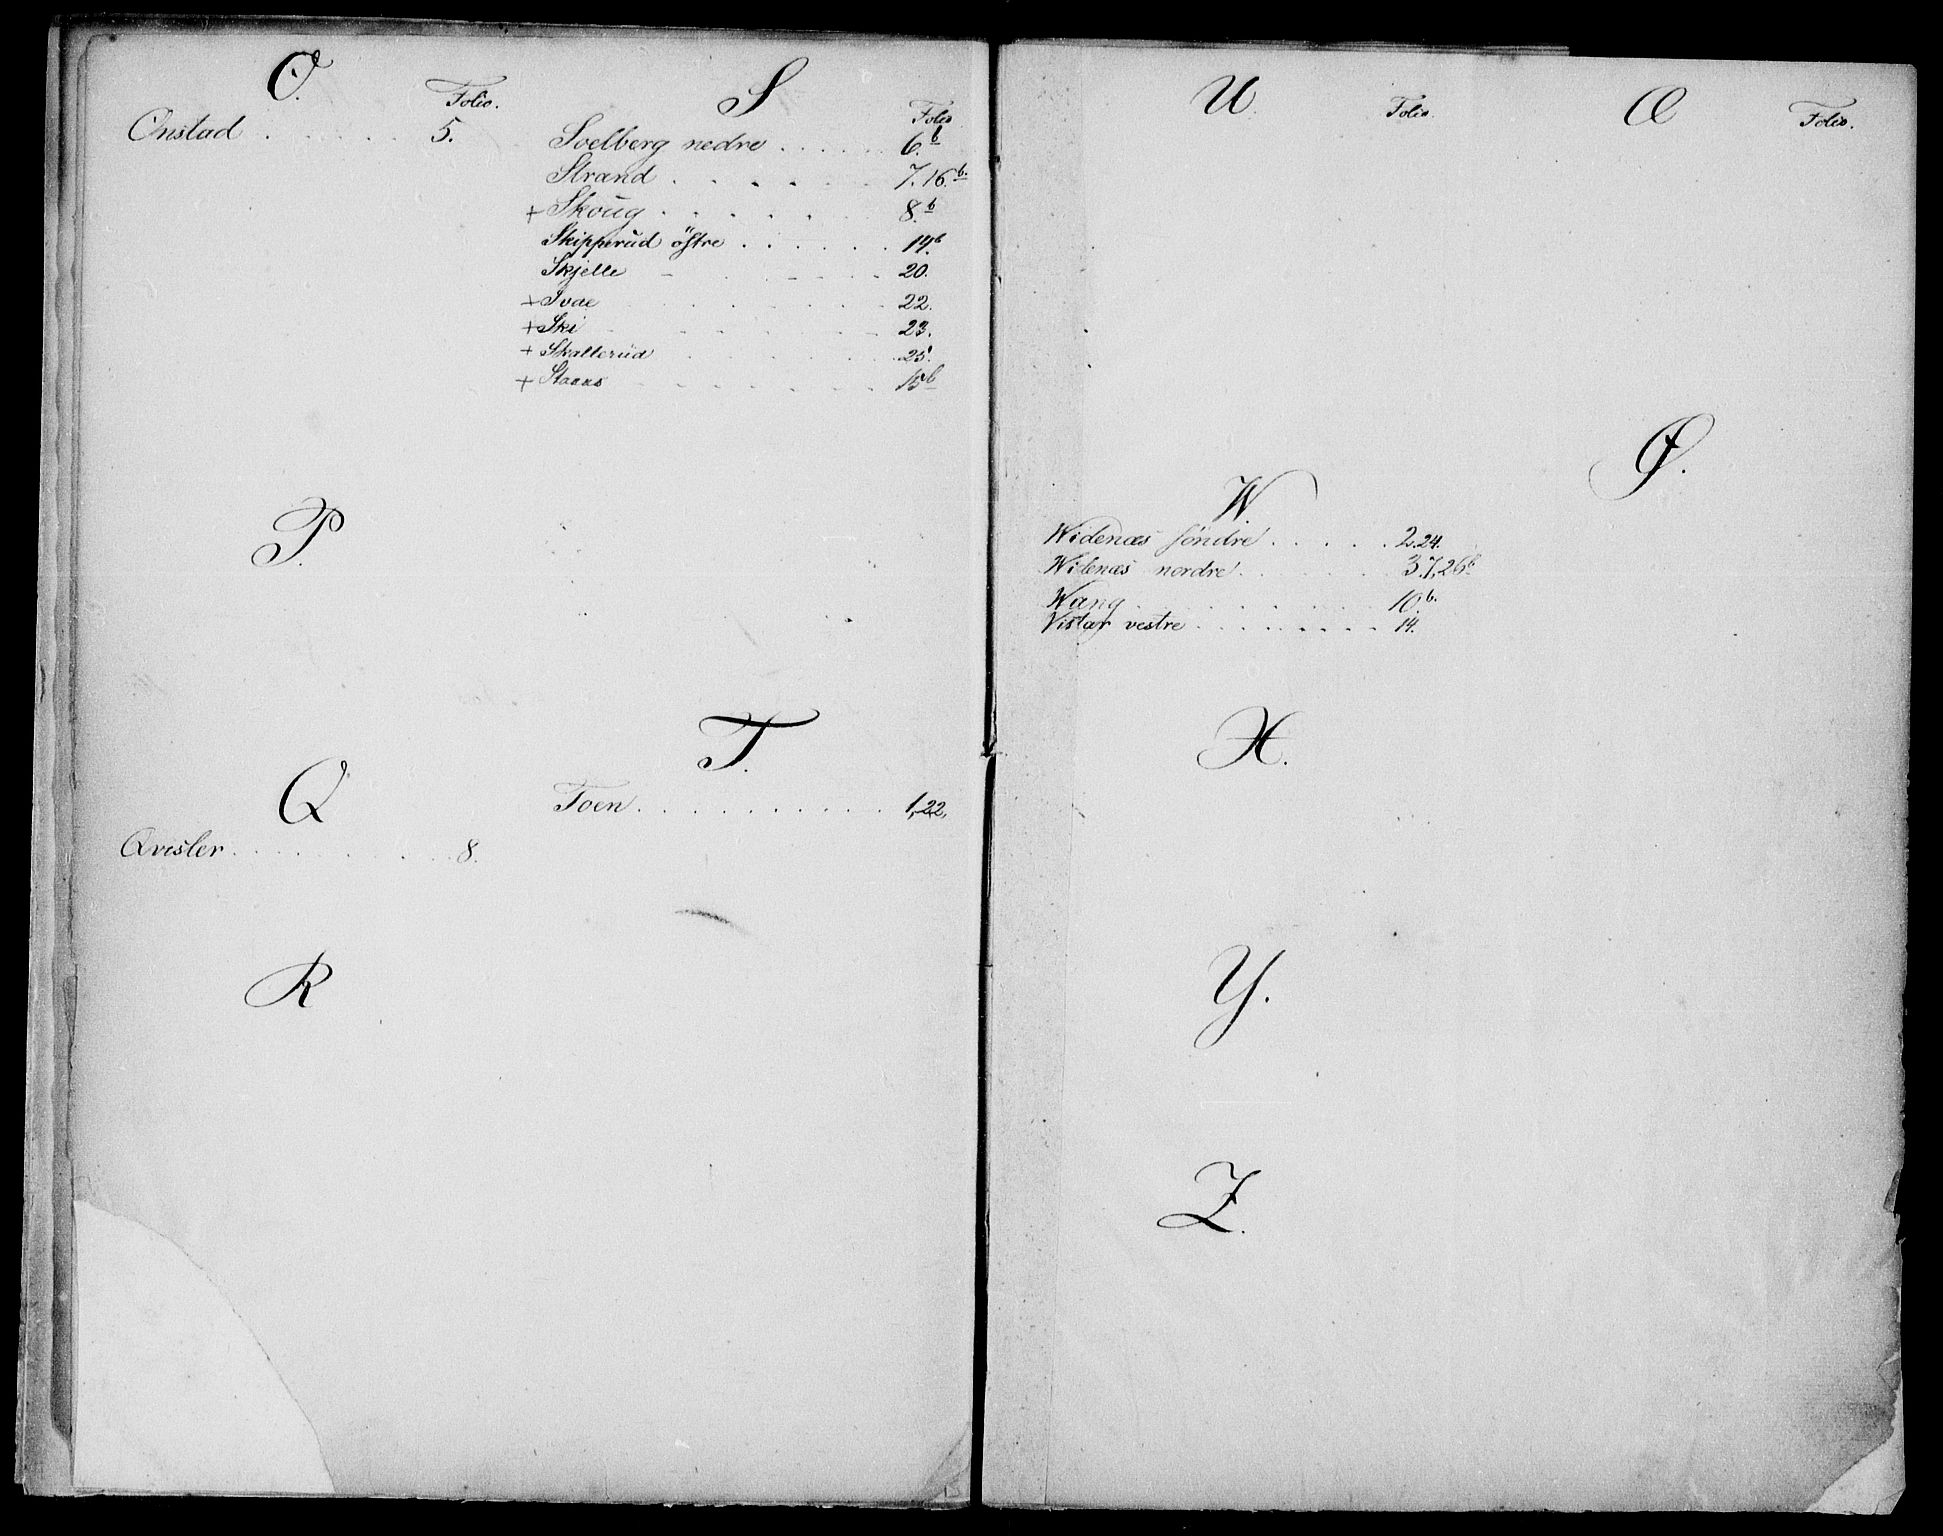 O.
Folio.
Onstad . . . . . . 5.
P.
Q
Qvisler . . . . . . . . . 8.
R
S
Folio
Soelberg nedre . . . . . 6.b
Strand . . . . . . 7.16.b.
+ Skoug . . . . . . 8.b
Skipperud östre . . . . . . 14b.
Skjelle . . . . 20.
+ Svae . . . . . 22.
+ Ski . . . . . . 23.
+ Skallerud . . . . . 25.
+ Staxas . . . . . . 15b
T.
Toen . . . . . . . . . . 1,22,
U.
Folio.
W.
Widenæs söndre . . . . . 2.24.
Widenæs nordre . . . . . . 3.7,26b
Wang . . . . . . . . . 10.b.
Vistær vestre . . . . . . . . 14.
X.
Y.
Z.
Æ
Folio.
Ø.